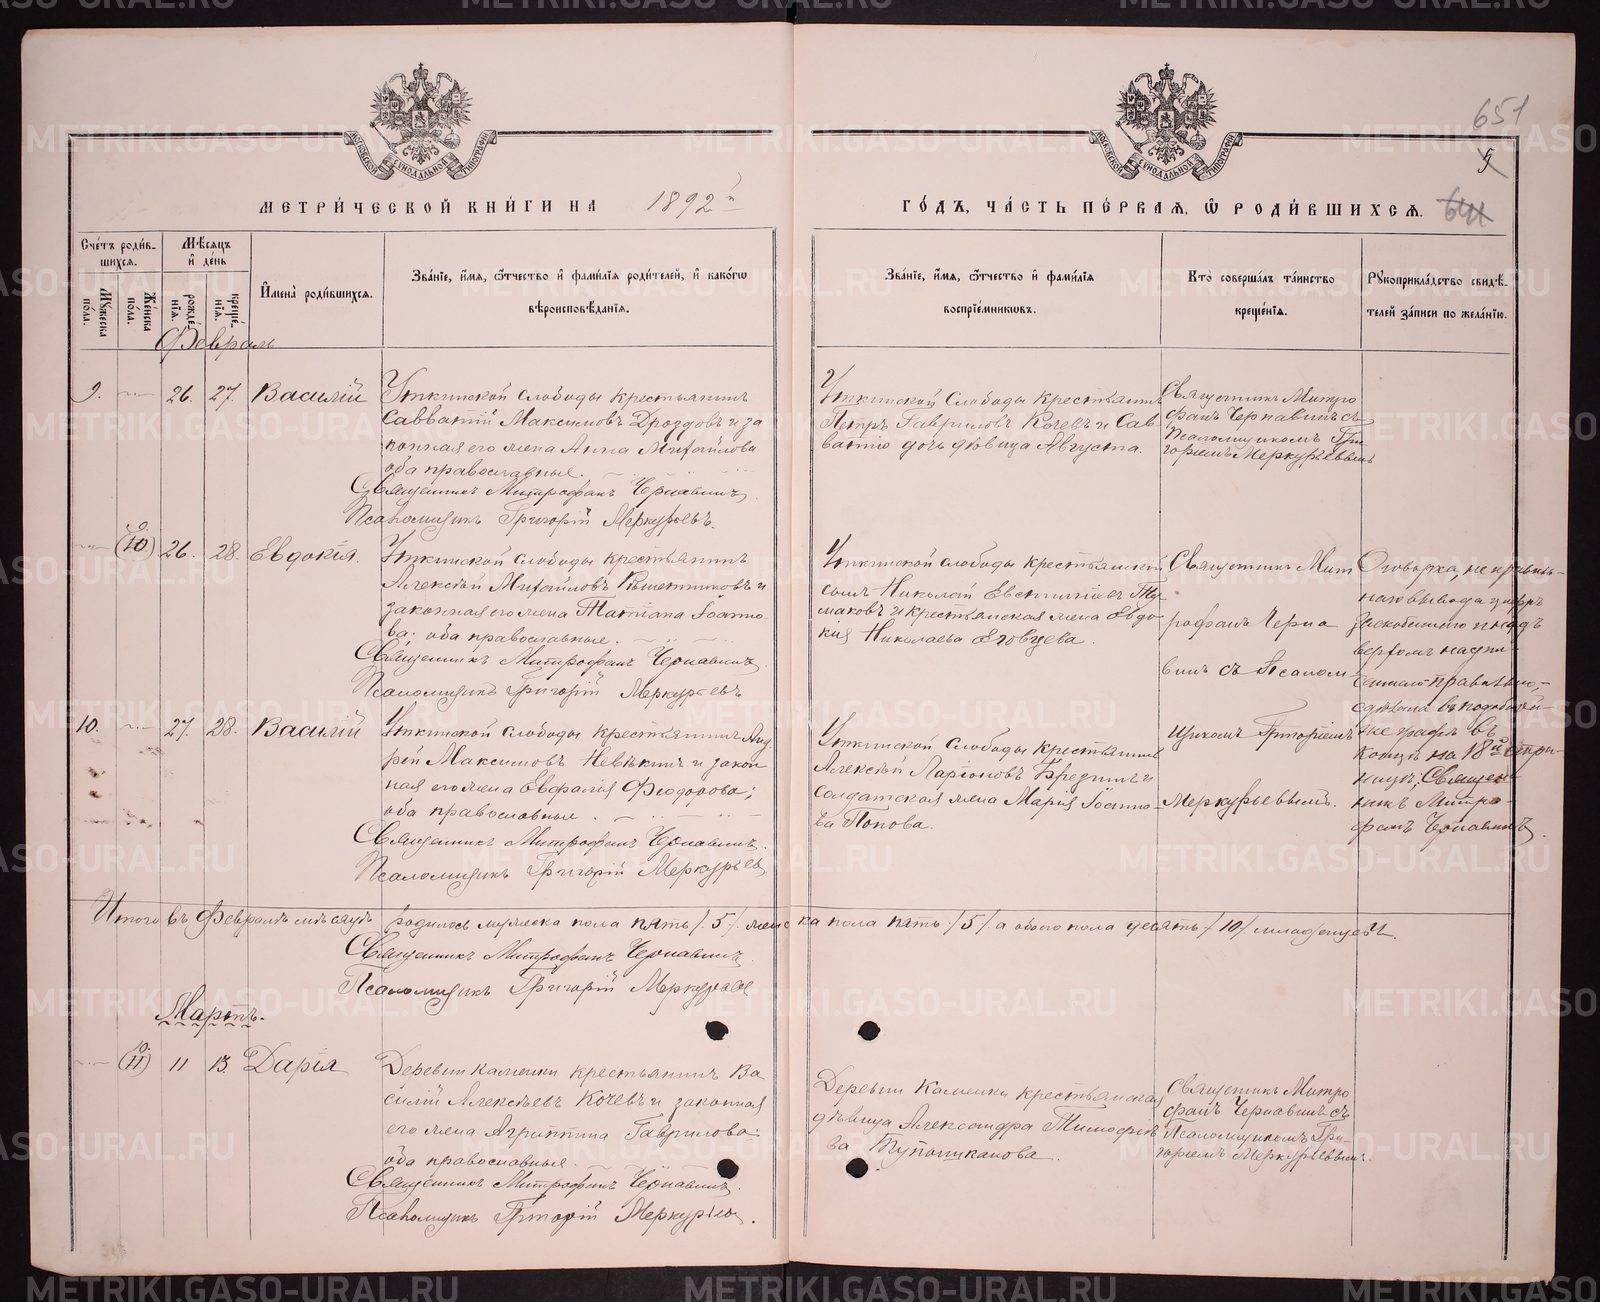 651
5
МЕТРИ́ЧЕСКОЙ КНИ́ГИ НА 1892 й
ГО́ДЪ, ЧА́СТЬ ПЕ́РВАЯ, Ѡ РОДИ́ВШИХСЯ.
641
Сче́тъ роди́вшихся.
Мѣ́сяцъ и де́нь
Му́жеска по́ла.
Же́нска по́ла.
рожде́нїя.
креще́нїя.
И҆мена̀ роди́вшихся.
Зва́нїе, и҆́мя, ѻ҆́тчество и҆ фами́лїя роди́телей, и҆ како́гѡ
вѣроисповѣ́данїя.
Зва́нїе, и҆́мя, ѻ҆́тчество и҆ фами́лїя
воспрїе́мникѡвъ.
Кто̀ соверша́лъ та́инство
креще́нїя.
Рꙋкоприкла́дство свидѣ́-
телей за́писи по жела́нїю.
Февраль
9. 26. 27. Василій
Уткинской слободы крестьянинъ
Савватій Максимовъ Дроздовъ и за
конная его жена Анна Михайлова
оба православные.
Священникъ Митрофанъ Чернавинъ.
Псаломщикъ Григорій Меркурьевъ.
Уткинской Слободы крестьянинъ
Петръ Гавриловъ Кочевъ и Сав
ватію дочь дѣвица Августа.
Священникъ Митро
фанъ Чернавинъ съ
Псаломщикомъ Гри
горіемъ Меркурьевымъ
9.
(10) 26. 28. Евдокія.
Уткинской слободы крестьянинъ
Алексѣй Михайловъ и
законная его жена Татіана Іоанно
ва; оба православные.
Священникъ Митрофанъ Чернавинъ
Псаломщикъ Григорій Меркурьевъ
Уткинской слободы крестьянскій
сынъ Николай Евстигніевъ Ту
маковъ и крестьянская жена Евдо
кія Николаева
Священникъ Мит
рофанъ Черна
винъ съ Псалом
щикомъ Григоріемъ
Меркурьевымъ.
Оговорка,
вывода цифръ
и надъ
верхомъ надпи-
правильно,
сдѣлана въ
графѣ въ
концѣ на 18 й стра
ницѣ; Священ
никъ Митро
фанъ Чернавинъ.
10. 27. 28. Василій
Уткинской слободы крестьянинъ Анд
рей Максимовъ Невѣкинъ и закон
ная его жена Евфалія Феодорова;
оба православные.
Священникъ Митрофанъ Чернавинъ.
Псаломщикъ Григорій Меркурьевъ
Уткинской слободы крестьянинъ
Алексѣй Ларіоновъ Бредихинъ и
солдатская жена Марія Іоанно
ва Попова.
Итого въ Февралѣ мѣсяцѣ родилось мужеска пола пять /5/ женска пола пять /5/ а обоего пола десять /10/ младенцевъ.
Священникъ Митрофанъ Чернавинъ.
Псаломщикъ Григорій Меркурьевъ
Мартъ.
10.
(11) 11 13. Дарія
Деревни Каменки крестьянинъ Ва
силій Алексѣевъ Кочевъ и законная
его жена Агриппина Гаврилова:
оба православные.
Священникъ Митрофанъ Чернавинъ.
Псаломщикъ Григорій Меркурьевъ.
Деревни Каменки крестьянская
дѣвица Александра Тимофѣе
ва
Священникъ Митро
фанъ Чернавинъ съ
Псаломщикомъ Гри-
горіемъ Меркурьевымъ.
METRIKI.GASO-URAL.RU